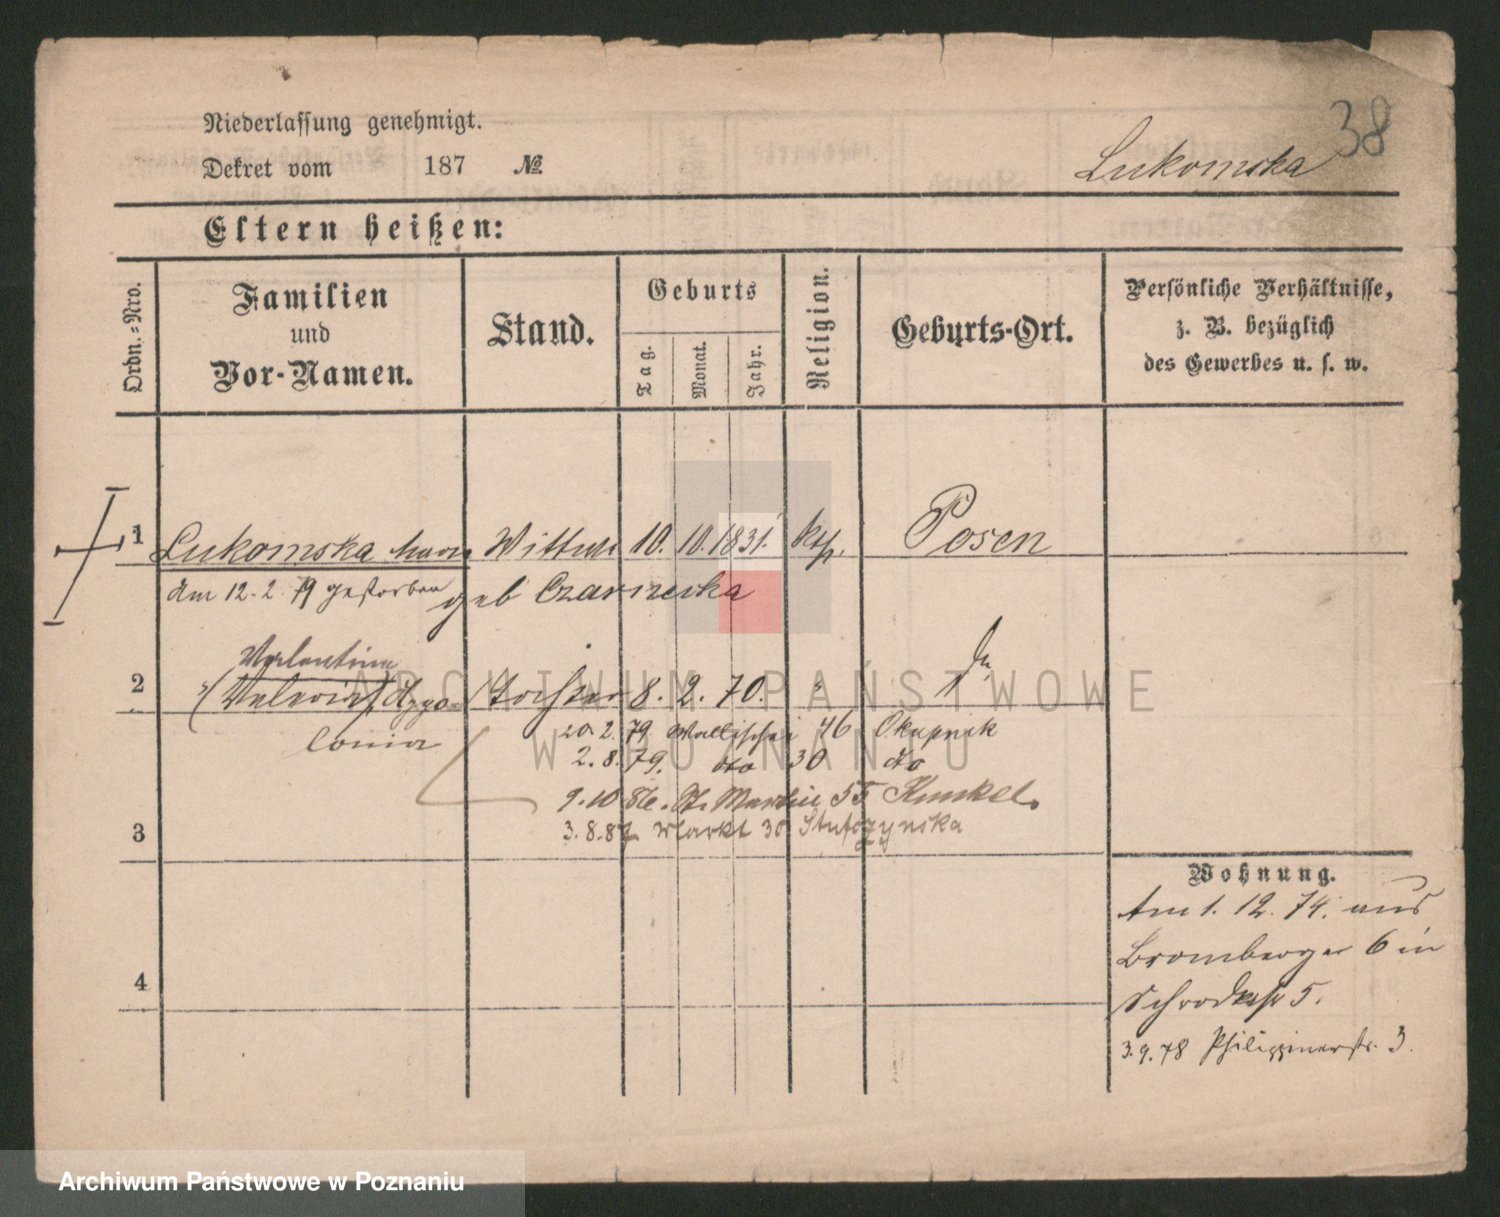 38
Niederlassung genehmigt.
Dekret vom 187 №
Lukomska
Eltern heißen:
Ordn.=Nro.
Familien
und
Vor-Namen.
Stand.
Geburts
Tag.
Monat.
Jahr.
Religion.
Geburts-Ort.
Persönliche Verhältnisse,
z. B. bezüglich
des Gewerbes u. s. w.
1 Lukomska Maria Wittwe 10. 10. 1831. kth. Posen
Am 12. 2. 79 gestorben geb Czarnecka
Valentine
2 Valeria Appo= Tochter 8. 2. 70. "
lonia
20. 2. 79 Wallischei 46 Okupnik
2. 8. 79. dto 30 do
9. 10 86. St. Martin 55 Kunkel.
3. 8. 87 Markt 30
3
Wohnung.
Am 1. 12. 74. aus
Bromberger 6 in
5.
3. 9. 78 Philippinerstr. 3.
4
ARCHIWUM PAŃSTWOWE
W POZNANIU
Archiwum Państwowe w Poznaniu